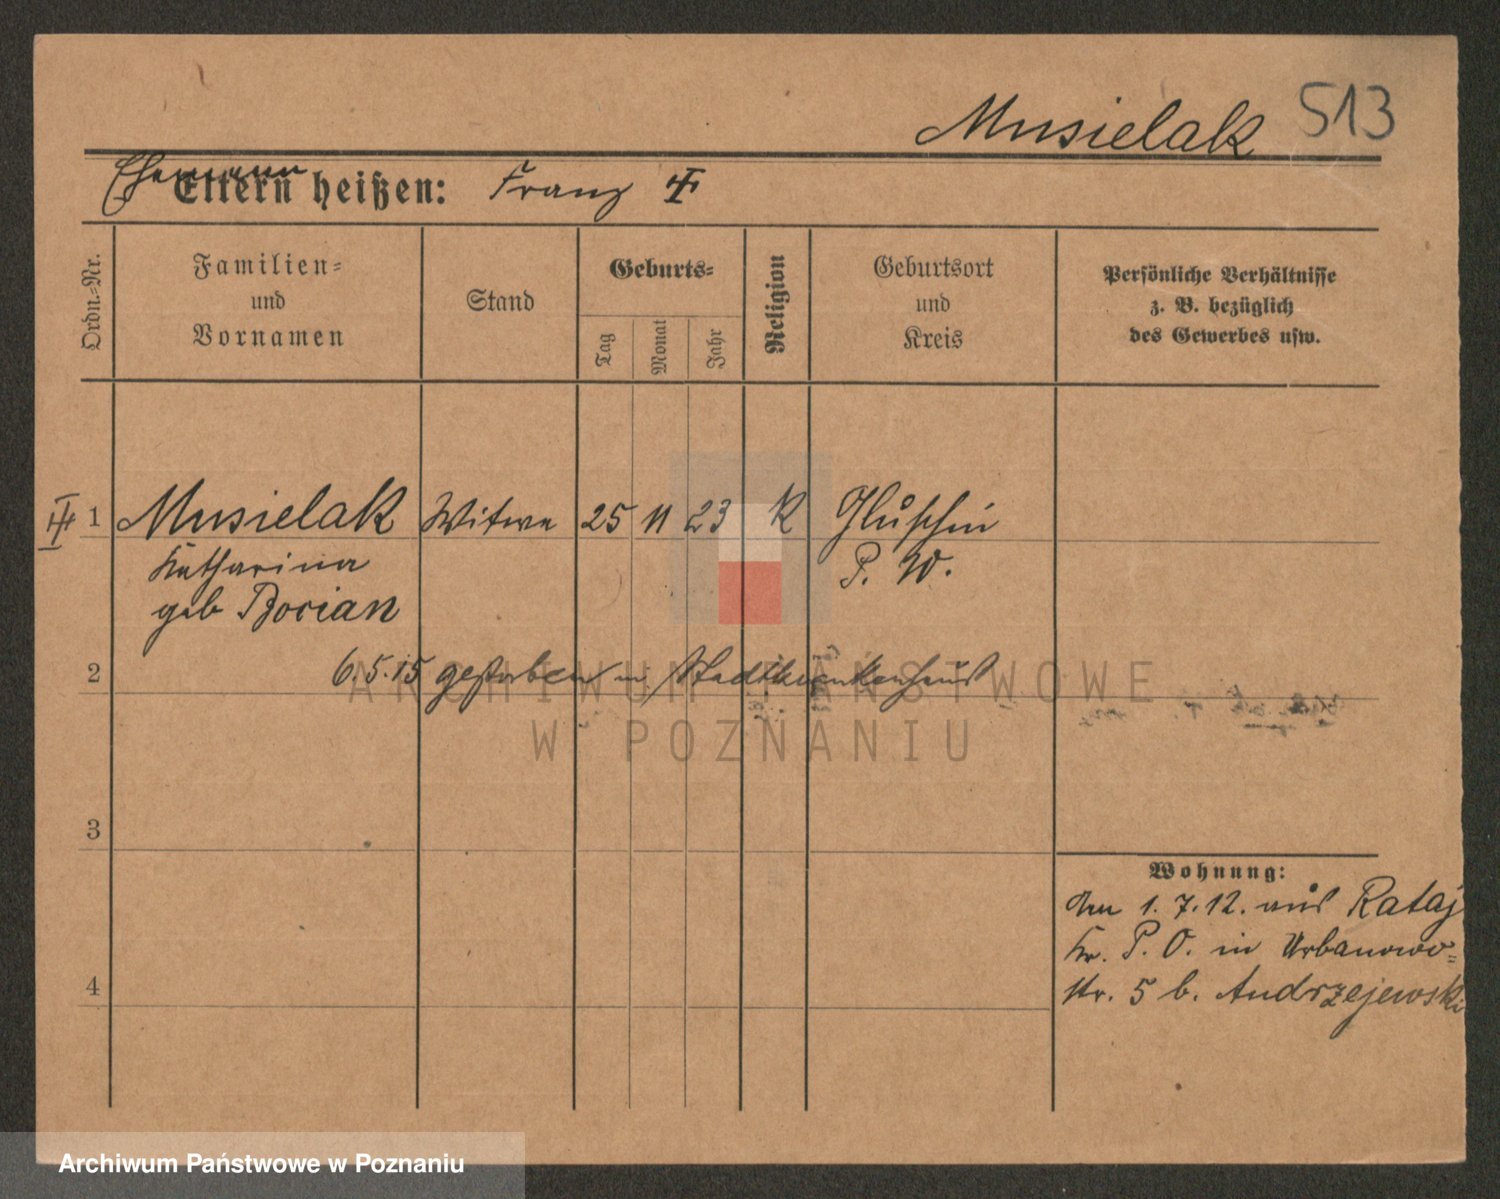 Musielak 513
Ehemann
Eltern heißen: Franz
Ordn.-Nr.
Familien-
und
Vornamen
Stand
Geburts-
Tag
Monat
Jahr
Religion
Geburtsort
und
Kreis
Persönliche Verhältnisse
z. B. bezüglich
des Gewerbes usw.
1 Musielak Witwe 25 11 23 K Gluschin
Katharina P. W.
geb Bocian
2 6.5.15 gestorben in Stadtkrankenhaus
ARCHIWUM PAŃSTWOWE
W POZNANIU
3
Wohnung:
Am 1.7.12. aus Rataj
Kr. P. O. in Urbanowo-
4
str. 5 b. Andrzejewski
Archiwum Państwowe w Poznaniu